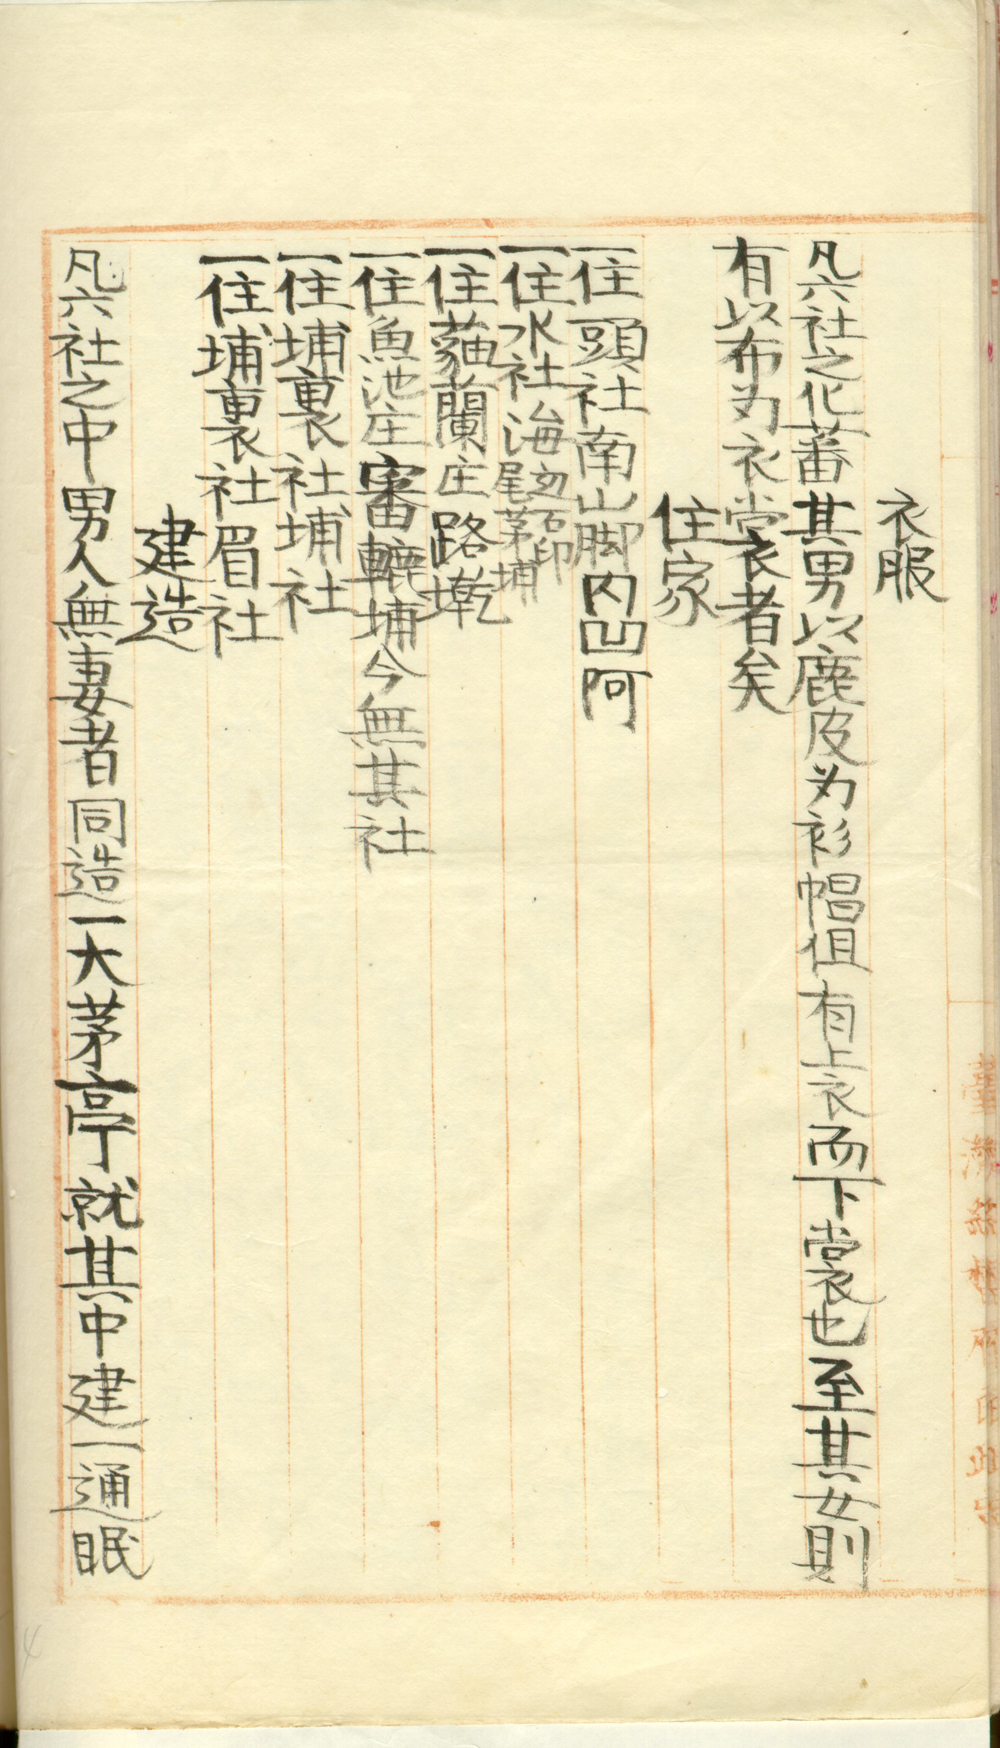 衣服
凡六社之化蕃其男以鹿皮为衫帽但有上衣而下裳也至其女則
有以布为衣裳衣者矣
住家
一住頭社南山脚内凹阿
一住水社海 石印
尾茅埔
一住蘭庄路墘
一住魚池庄審轆埔今無其社
一住埔裏社埔社
一住埔裏社眉社
建造
凡六社之中男人無妻者同造一大茅亭就其中建一通眠